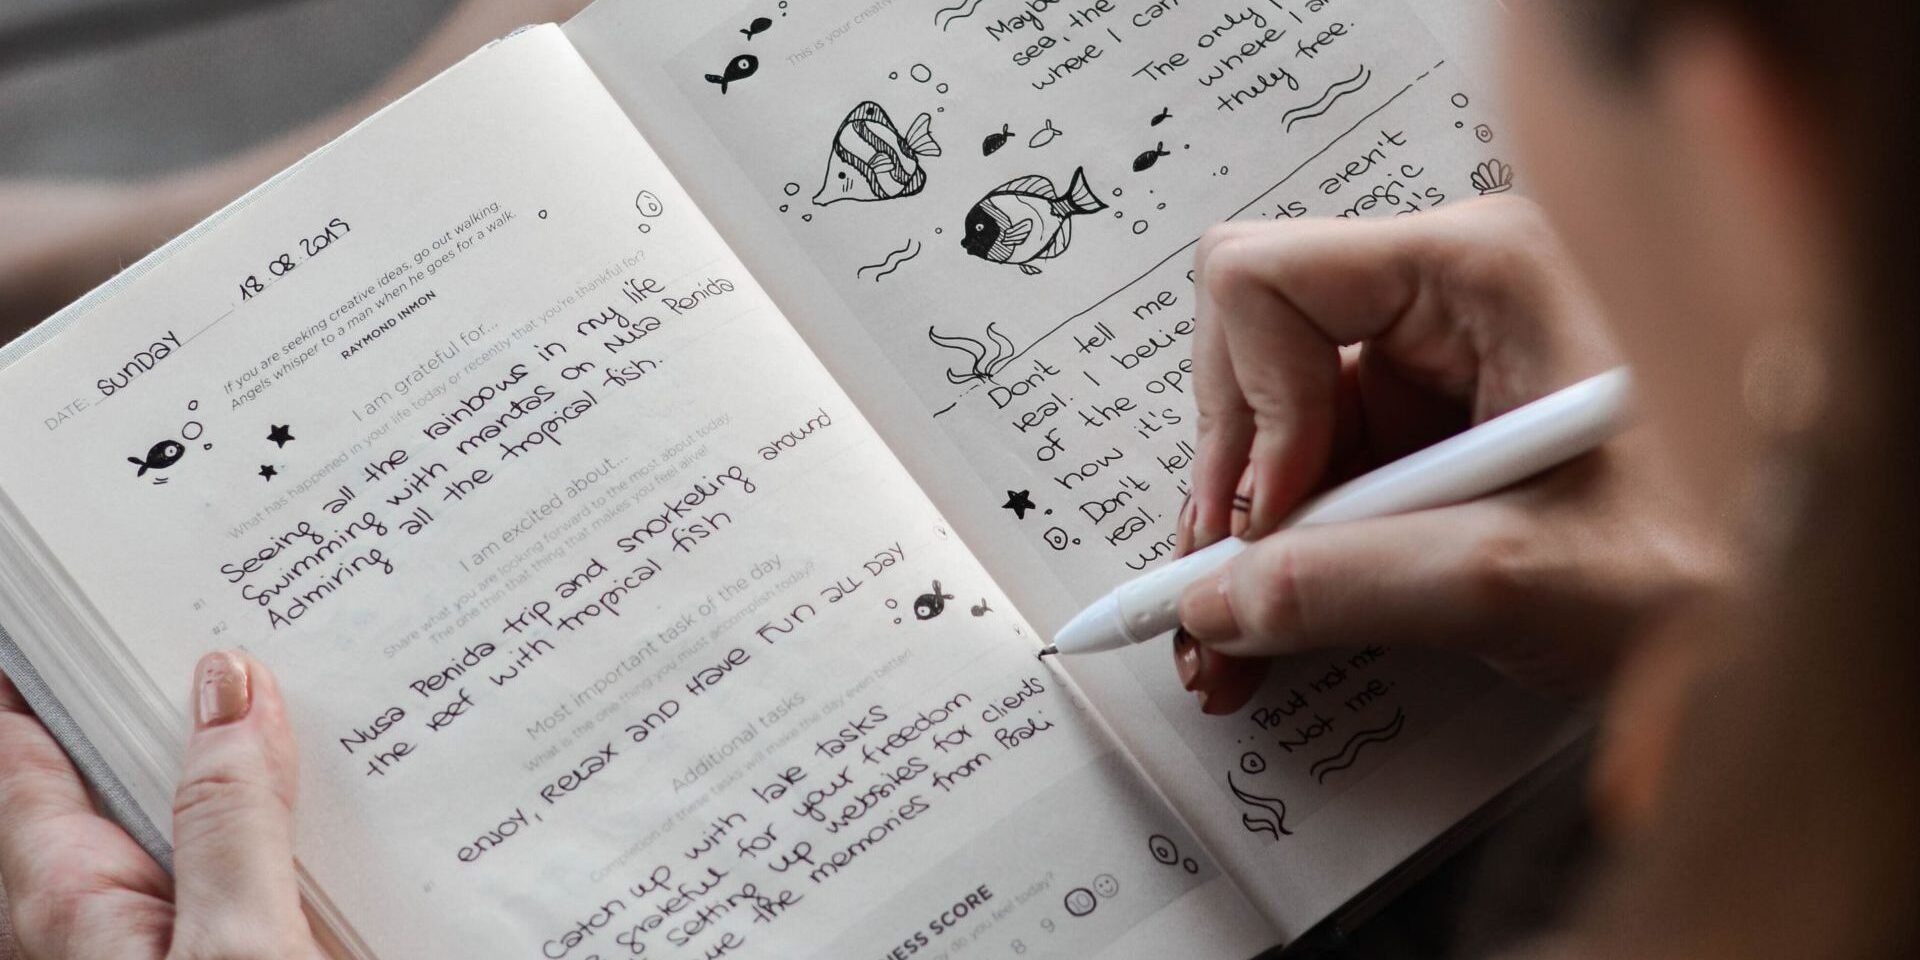 DATE: SUNDAY 18.08.2019
If you are seeking creative ideas, go out walking.
Angels whisper to a man when he goes for a walk.
RAYMOND INMON
I am grateful for...
What has happened in your life today or recently that you're thankful for?
#1 Seeing all the rainbows in my life
#2 Swimming with mantas on Nusa Penida
Admiring all the tropical fish.
I am excited about...
Share what you are looking forward to the most about today.
The one thing that makes you feel alive!
Nusa Penida trip and snorkeling around
the reef with tropical fish
Most important task of the day
What is the one thing you must accomplish today?
ENJOY, RELAX AND HAVE FUN ALL DAY
Additional tasks
Completion of these tasks will make the day even better!
Catch up with late tasks
grateful for your freedom
setting up websites for clients
the memories from Bali
NESS SCORE
do you feel today?
8 9 10
This is your creativ
Maybe
see, the
where I can
The only
where I a
truly free.
ds aren't
magic
Don't tell me
real. I believe
of the ope
how it's
Don't tell
real.
But not me.
Not me.